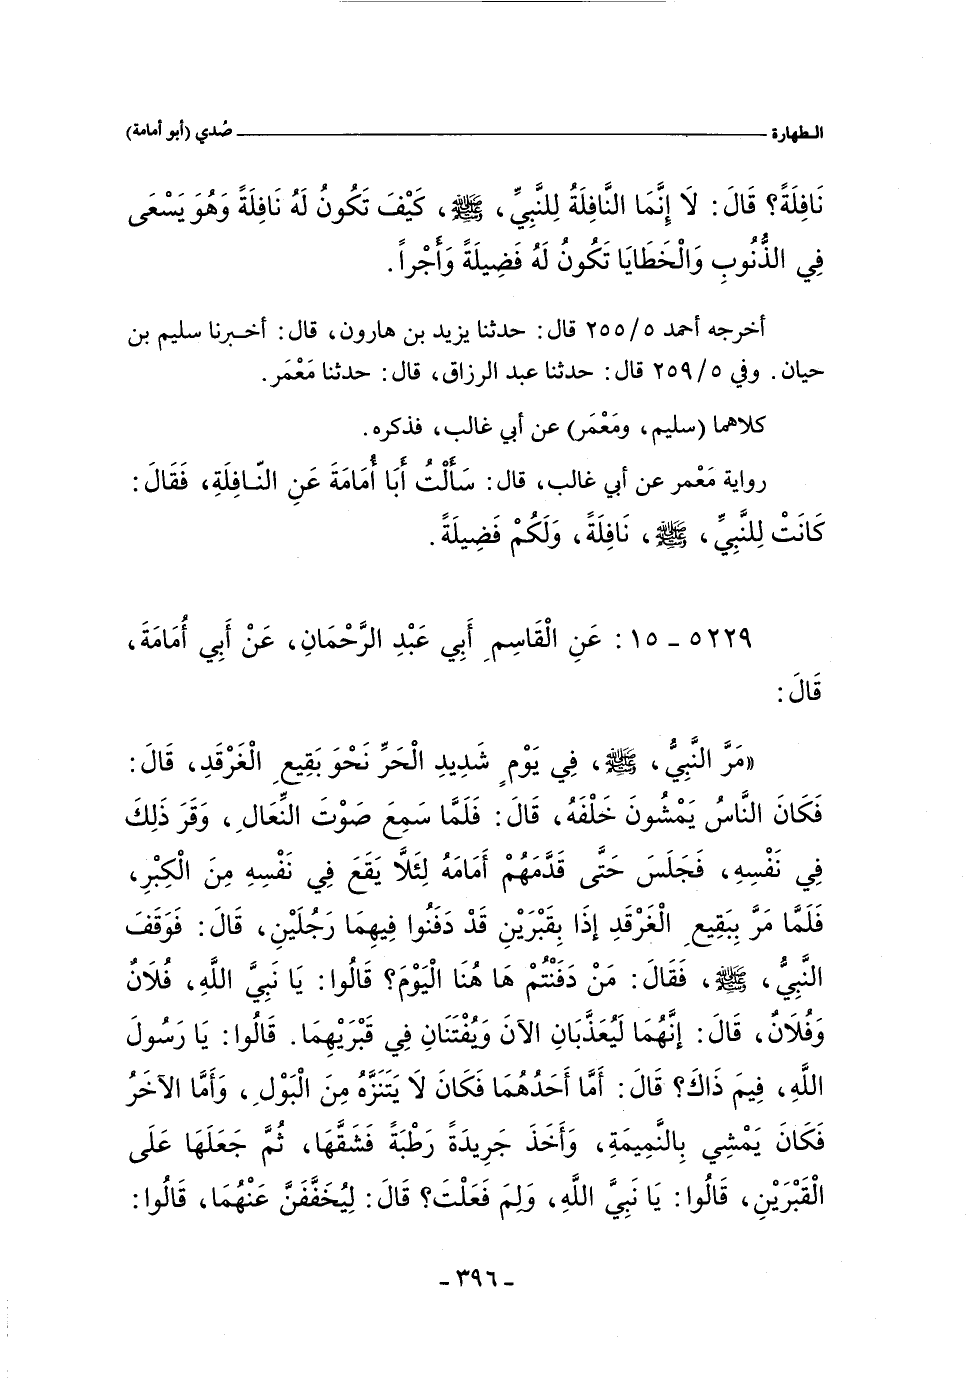 الطهارة صُدي (أبو أمامة)
نَافِلَةً؟ قَالَ: لَا إِنَّمَا النَّافِلَةُ لِلنَّبِيِّ، ﷺ، كَيْفَ تَكُونُ لَهُ نَافِلَةً وَهُوَ يَسْعَى
فِي الذُّنُوبِ وَالْخَطَايَا تَكُونُ لَهُ فَضِيلَةً وَأَجْراً.
أخرجه أحمد ٢٥٥/٥ قال: حدثنا يزيد بن هارون، قال: أخبرنا سليم بن
حيان. وفي ٢٥٩/٥ قال: حدثنا عبد الرزاق، قال: حدثنا مَعْمَر.
كلاهما (سليم، ومَعْمَر) عن أبي غالب، فذكره.
رواية مَعْمر عن أبي غالب، قال: سَأَلْتُ أَبَا أُمَامَةَ عَنِ النَّافِلَةِ، فَقَالَ:
كَانَتْ لِلنَّبِيِّ، ﷺ، نَافِلَةً، وَلَكُمْ فَضِيلَةً.
٥٢٢٩ - ١٥: عَنِ الْقَاسِمِ أَبِي عَبْدِ الرَّحْمَانِ، عَنْ أَبِي أُمَامَةَ،
قَالَ:
«مَرَّ النَّبِيُّ، ﷺ، فِي يَوْمٍ شَدِيدِ الْحَرِّ نَحْوَ بَقِيعِ الْغَرْقَدِ، قَالَ:
فَكَانَ النَّاسُ يَمْشُونَ خَلْفَهُ، قَالَ: فَلَمَّا سَمِعَ صَوْتَ النِّعَالِ، وَقَرَ ذَلِكَ
فِي نَفْسِهِ، فَجَلَسَ حَتَّى قَدَّمَهُمْ أَمَامَهُ لِئَلَّا يَقَعَ فِي نَفْسِهِ مِنَ الْكِبْرِ،
فَلَمَّا مَرَّ بِبَقِيعِ الْغَرْقَدِ إِذَا بِقَبْرَيْنِ قَدْ دَفَنُوا فِيهِمَا رَجُلَيْنِ، قَالَ: فَوَقَفَ
النَّبِيُّ، ﷺ، فَقَالَ: مَنْ دَفَنْتُمْ هَا هُنَا الْيَوْمَ؟ قَالُوا: يَا نَبِيَّ اللَّهِ، فُلَانٌ
وَفُلَانٌ، قَالَ: إِنَّهُمَا لَيُعَذَّبَانِ الآنَ وَيُفْتَنَانِ فِي قَبْرَيْهِمَا. قَالُوا: يَا رَسُولَ
اللَّهِ، فِيمَ ذَاكَ؟ قَالَ: أَمَّا أَحَدُهُمَا فَكَانَ لَا يَتَنَزَّهُ مِنَ الْبَوْلِ، وَأَمَّا الآخَرُ
فَكَانَ يَمْشِي بِالنَّمِيمَةِ، وَأَخَذَ جَرِيدَةً رَطْبَةً فَشَقَّهَا، ثُمَّ جَعَلَهَا عَلَى
الْقَبْرَيْنِ، قَالُوا: يَا نَبِيَّ اللَّهِ، وَلِمَ فَعَلْتَ؟ قَالَ: لِيُخَفَّفَنَّ عَنْهُمَا، قَالُوا:
- ٣٩٦ -